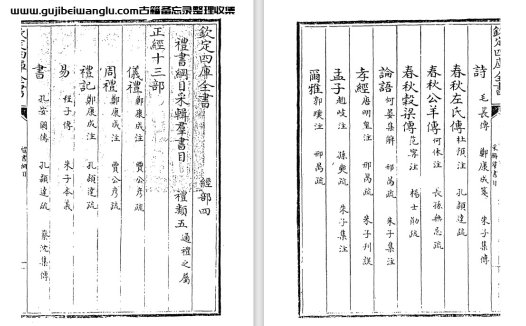 www.gujibeiwanglu.com古籍备忘录整理收集
欽定四庫全書 經部四
禮書綱目采輯羣書目 禮類五 通禮之屬
正經十三部
儀禮 鄭康成注 賈公彥疏
周禮 鄭康成注 賈公彥疏
禮記 鄭康成注 孔穎達疏
易 程子傳 朱子本義
書 孔安國傳 孔穎達疏 蔡沈集傳
欽定四庫全書
詩 毛萇傳 鄭康成箋 朱子集傳
春秋左氏傳 杜預注 孔穎達疏
春秋公羊傳 何休注
春秋穀梁傳 范甯注 楊士勛疏
論語 何晏集解 邢昺疏 朱子集注
孝經 唐明皇注 邢昺疏 朱子刊誤
孟子 趙岐注 孫奭疏 朱子集注
爾雅 郭璞注 邢昺疏
欽定四庫全書